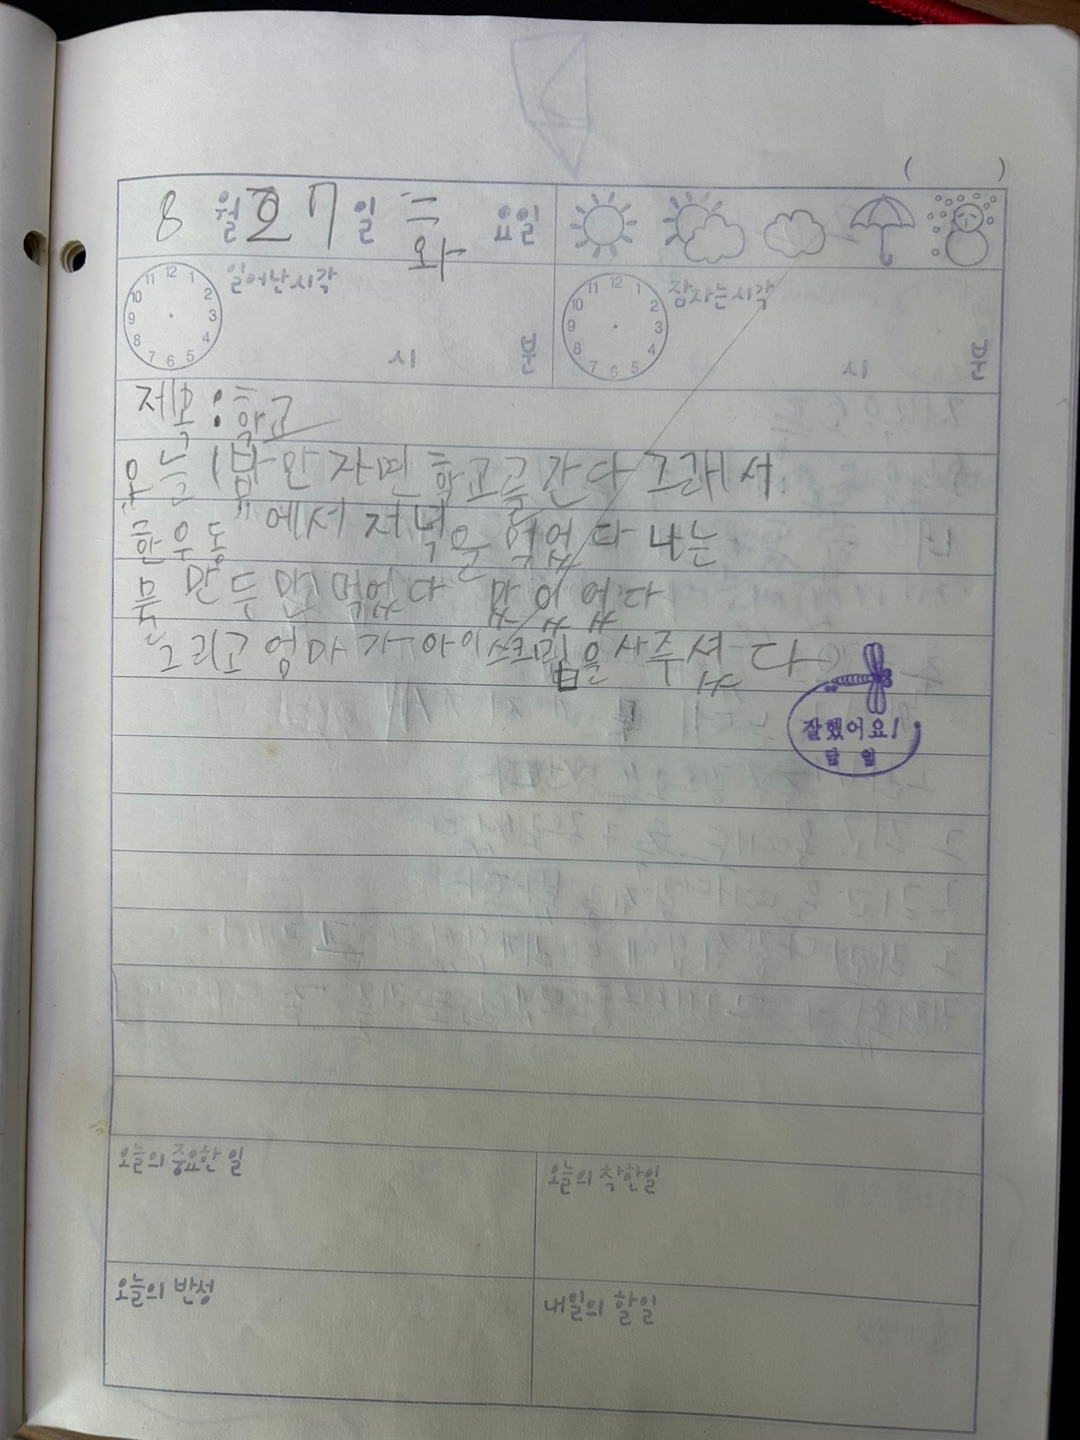 ( )
8 월 27 일 화 요일
일어난시각 시 분
잠자는시각 시 분
12 1 2 3 4 5 6 7 8 9 10 11
12 1 2 3 4 5 6 7 8 9 10 11
제목 : 학교
오늘 1밤만자면 학교를 간다 그래서
한우동 에서 저녁을 먹었다 나는
물 만두만 먹었다 맛있었다
그리고 엄마가 아이스크림을 사주셨다
잘했어요!
달 일
오늘의 중요한 일
오늘의 착한일
오늘의 반성
내일의 할일